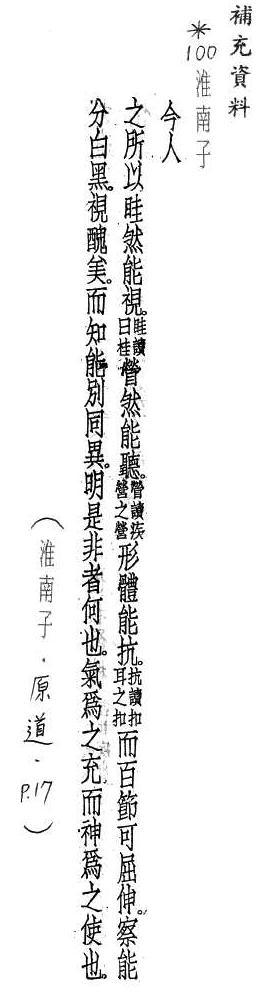 補充資料
*100 淮南子
今人
之所以眭然能視。眭讀曰桂䁝然能聽。䁝讀疾營之營形體能抗。抗讀扣耳之扣而百節可屈伸。察能
分白黑。視醜美。而知能別同異。明是非者何也。氣爲之充而神爲之使也。
(淮南子・原道・P.17)